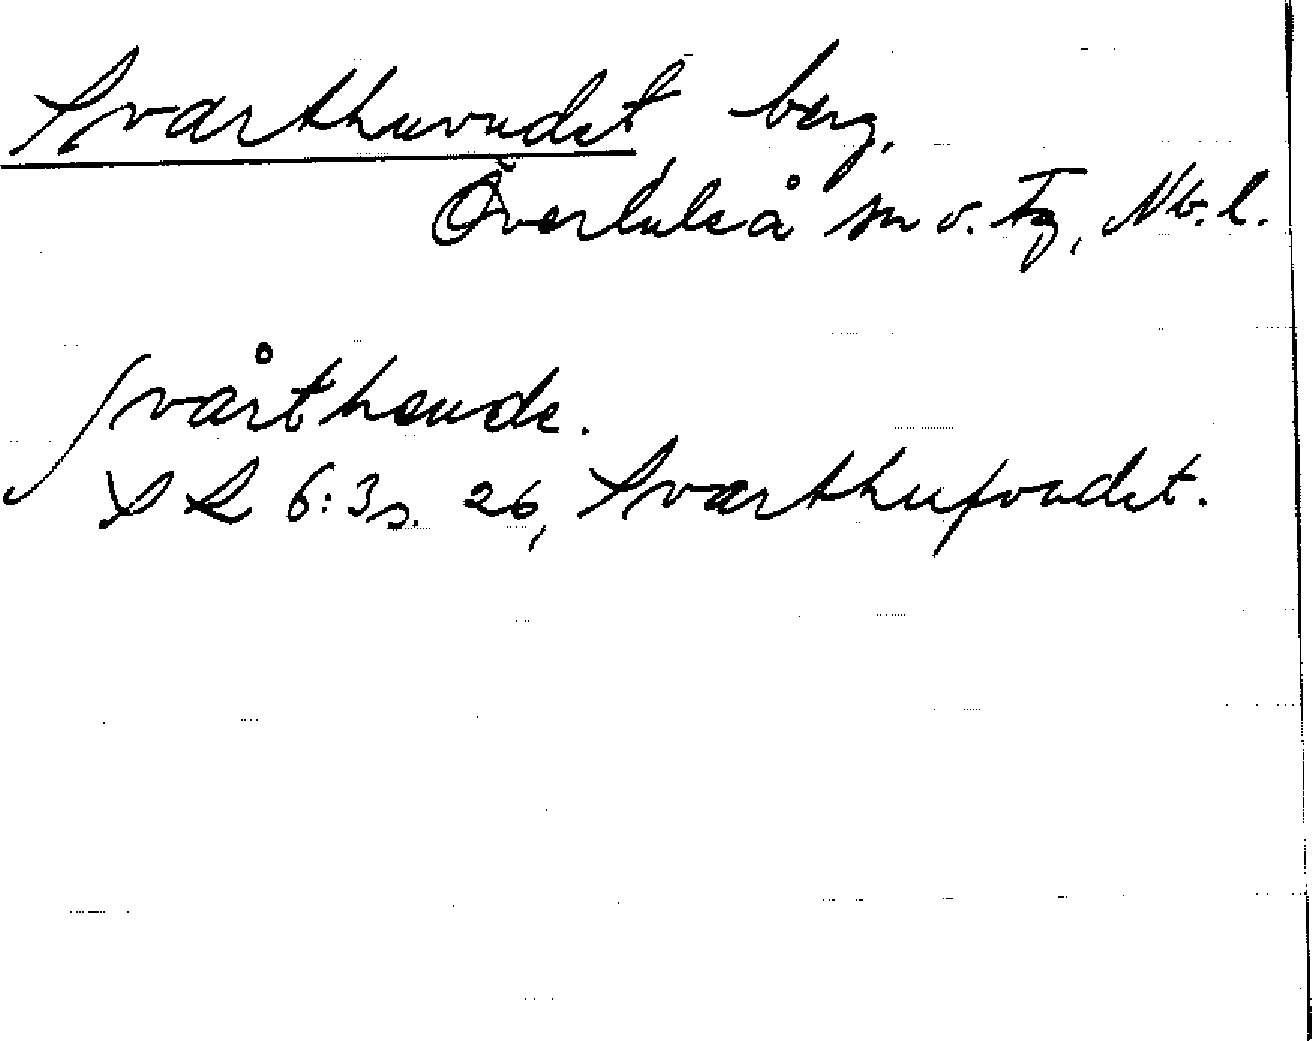 Svarthuvudet berg.
Överluleå sn o. tg, Nb. l.
Svårthəude.
SL 6:3 s. 26, Svarthufvudet.